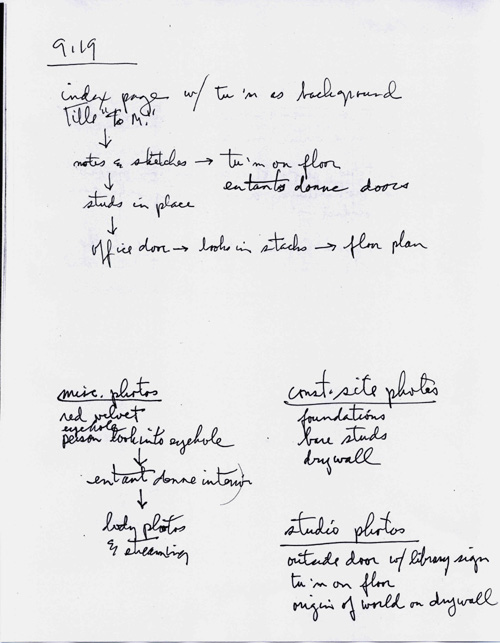 9.19
index page w/ tu'm as background
Title "to M."
↓
notes & sketches → tu'm on floor
entants donne doors
↓
studs in place
↓
office door → looks in stacks → floor plan
misc. photos
red velvet
eyehole
person look into eyehole
↓
entant donne interior
↓
body photos
& streaming
const. site photos
foundations
bare studs
drywall
studio photos
outside door w/ library sign
tu'm on floor
origins of world on drywall